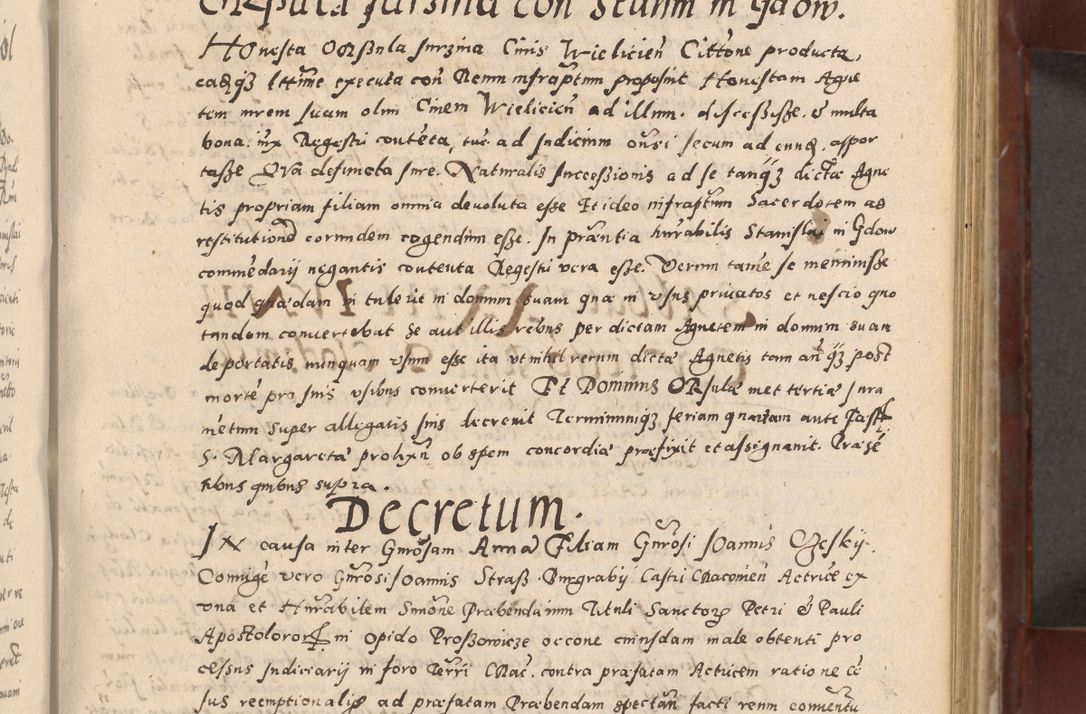 Orsula Jursina con Scdnm in Gdow.
Honesta Orszula Jurzina Civis Wieliciεn Cittone producta,
eaq qz lttime executa con Renm infraptnm proposuit Honestam Agne
tem mrem suam olim Civem Wielicien ad illnm. discessisse. & multa
bona. iux Regestri conteta, tuc ad Judicium onsi secum ad eund. asspor
tasse Qua defuncta jure. Naturalis successionis ad se tanqz dictæ Agne
tis propriam filiam omnia devoluta esse Et ideo infraptum Sacerdotem ad
restitutione eorundem cogendum esse. In præntia hnrabilis Stanislai in Gdow
commedarij negantis contenta Regestri vera esse. Verum tame se meminisse
quod quædam in tulerit in domum suam quæ in usus privatos et nescio quo
tandem convertebat Se aut illis rebus per dictam Agnetem in domum suam
deportatis nunquam usum esse ita ut nihil rerum dictæ Agnetis tam an qz post
morte pro suis usibus converterit Et Dominus Orsulæ met tertiæ Jura
metum super allegatis suis decrevit Terminumqz feriam quartam ante Fest
S. Margaretæ proxim ob spem concordiæ præfixit et assignavit. Præse
tibus quibus supra.
Decretum.
In causa inter Gnrosam Annã Filiam Gnrosi Joannis Czeskij.
Coniuge vero Gnrosi Joannis Strasz Burgrabij Castri Cracovien Actrice ex
una et Hnrabilem Simone Præbendarium Tituli Sanctorum Petri & Pauli
Apostolorom in opido Proszowicze occone cuiusdam male obtenti pro
cessus Judiciarij in foro Terri Crac. contra præfatam Actricem ratione Ce
sus reemptionalis ad præfatam Præbendam spectan facti renm conventu